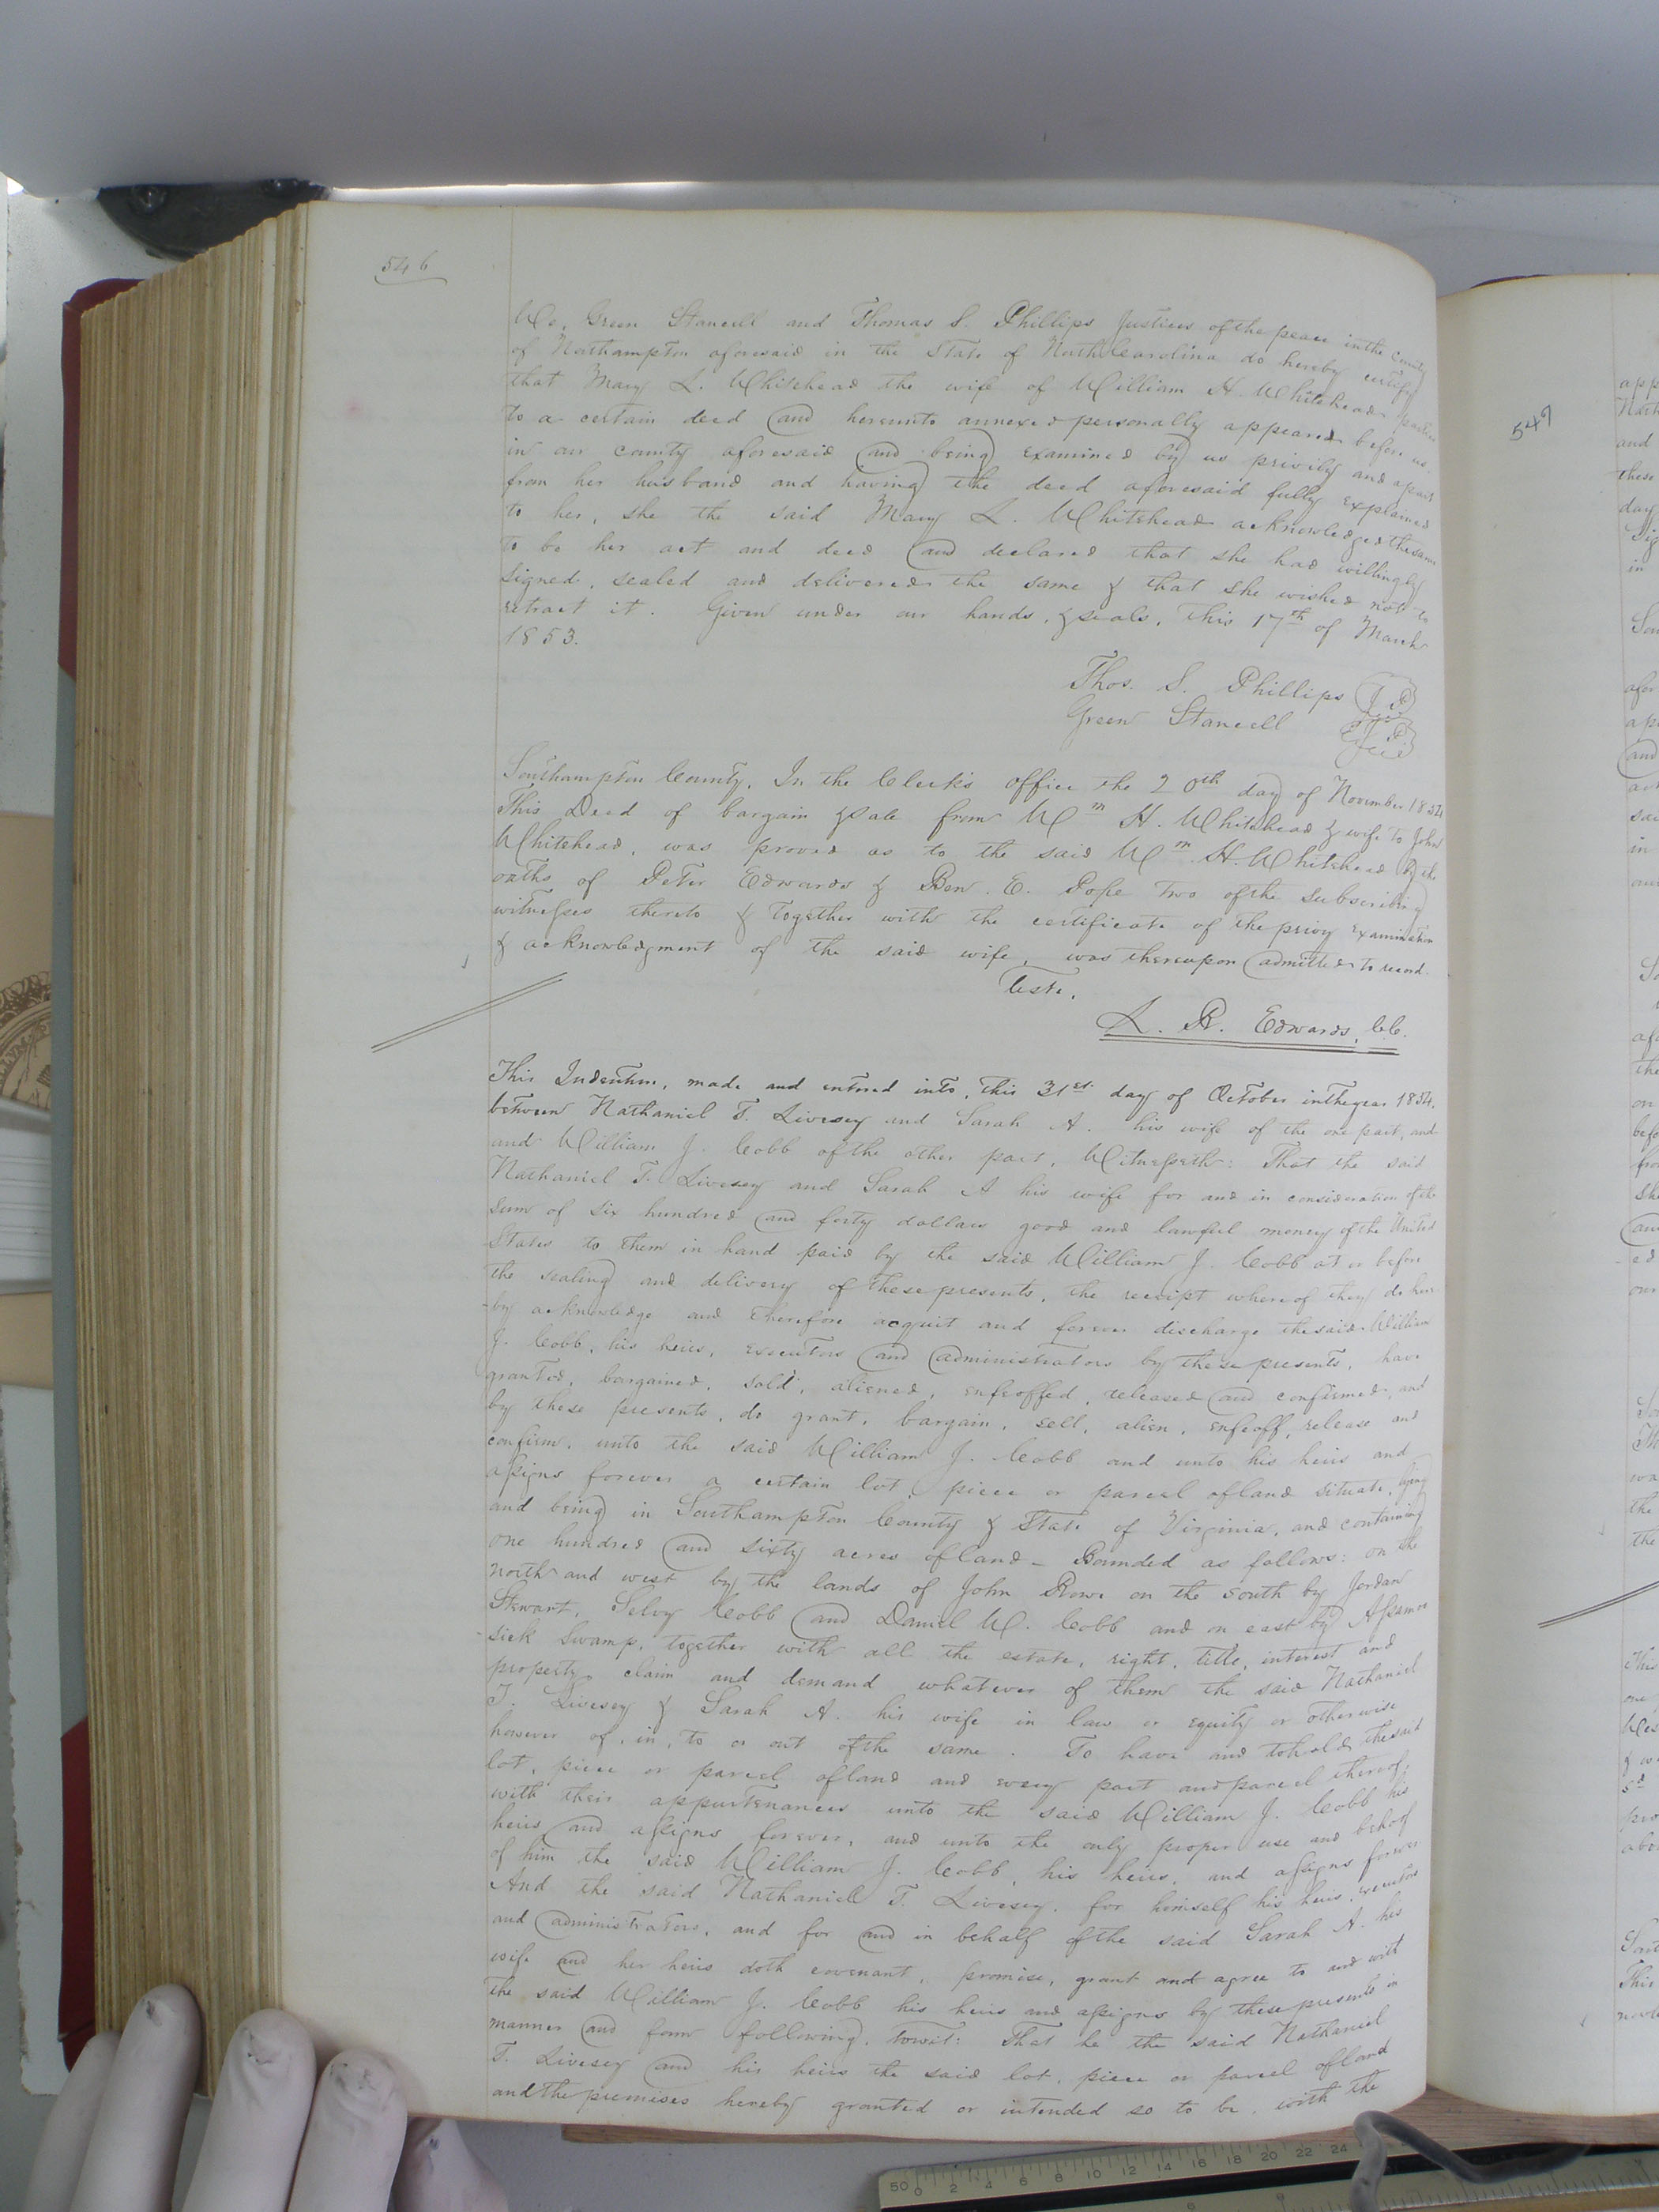 546
We, Green Stancell and Thomas S. Phillips Justices of the peace in the County
of Northampton aforesaid in the State of North Carolina do hereby certify
that Mary L. Whitehead the wife of William H. Whitehead parties
to a certain deed and hereunto annexed personally appeared before us
in our county aforesaid and being examined by us privily and apart
from her husband and having the deed aforesaid fully explained
to her, she the said Mary L. Whitehead acknowledged the same
to be her act and deed and declared that she had willingly
signed, sealed and delivered the same & that she wished not to
retract it. Given under our hands, & seals, this 17th of March
1853.
Thos. S. Phillips J.P
Green Stancell J.P
Southampton County, In the Clerk's office the 20th day of November 1854
This Deed of bargain & sale from Wm H. Whitehead & wife to John
Whitehead, was proved as to the said Wm H. Whitehead by the
oaths of Peter Edwards & Ben. E. Pope two of the subscribing
witnesses thereto & together with the certificate of the privy examination
& acknowledgment of the said wife, was thereupon admitted to record.
Teste,
L. R. Edwards, C.C.
This Indenture, made and entered into, this 31st day of October in the year 1854.
between Nathaniel T. Livesey and Sarah A. his wife of the one part, and
and William J. Cobb of the other part, Witnesseth: That the said
Nathaniel T. Livesey and Sarah A his wife for and in consideration of the
sum of six hundred and forty dollars good and lawful money of the United
States to them in hand paid by the said William J. Cobb at or before
the sealing and delivery of these presents, the receipt whereof they do here
-by acknowledge and therefore acquit and forever discharge the said William
J. Cobb, his heirs, executors and administrators by these presents, have
granted, bargained, sold, aliened, enfeoffed, released and confirmed, and
by these presents, do grant, bargain, sell, alien, enfeoff, release and
confirm, unto the said William J. Cobb and unto his heirs and
assigns forever a certain lot, piece or parcel of land situate, lying
and being in Southampton County & State of Virginia, and containing
one hundred and sixty acres of land - Bounded as follows: on the
north and west by the lands of John Rowe on the south by Jordan
Stewart, Selvy Cobb and Daniel W. Cobb and on east by Assamoo
-sick Swamp, together with all the estate, right, title, interest and
property, claim and demand whatever of them the said Nathaniel
T. Livesey & Sarah A. his wife in law or equity or otherwise
however of, in, to or out of the same. To have and to hold the said
lot, piece or parcel of land and every part and parcel thereof,
with their appurtenances unto the said William J. Cobb his
heirs and assigns forever, and unto the only proper use and behoof
of him the said William J. Cobb, his heirs, and assigns forever
And the said Nathaniel T. Livesey, for himself his heirs, executors
and administrators, and for and in behalf of the said Sarah A. his
wife and her heirs doth covenant, promise, grant and agree to and with
the said William J. Cobb his heirs and assigns by these presents in
manner and form following, towit: That he the said Nathaniel
T. Livesey and his heirs the said lot, piece or parcel of land
and the premises hereby granted or intended so to be, with the
547
and
these
day
in
50 0 2 4 6 8 10 12 14 16 18 20 22 24